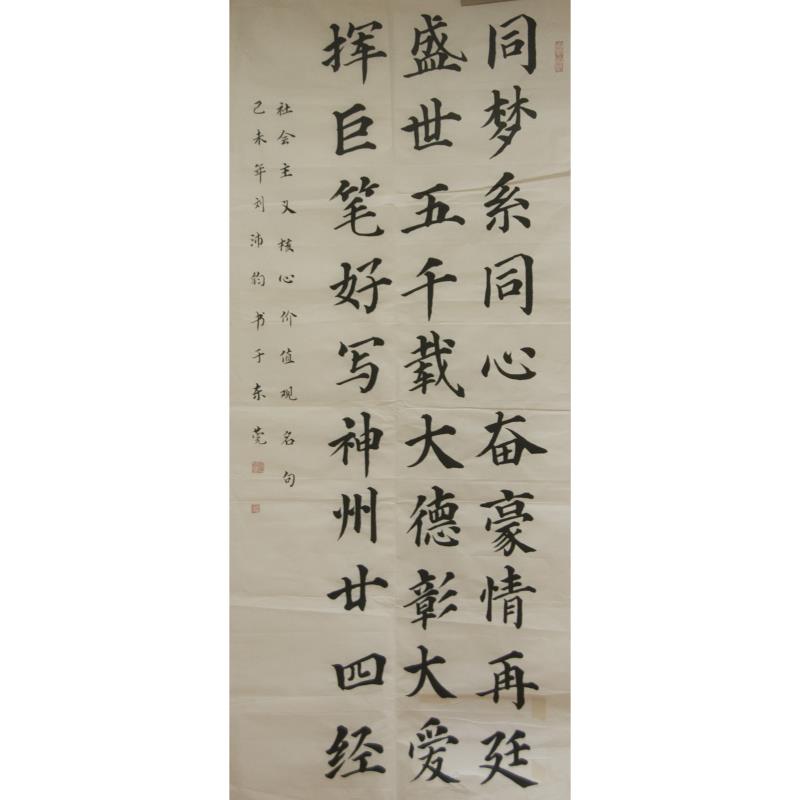 同梦系同心奋豪情再廷
盛世五千载大德彰大爱
挥巨笔好写神州廿四经
社会主义核心价值观名句
己未年刘沛钧书于东莞